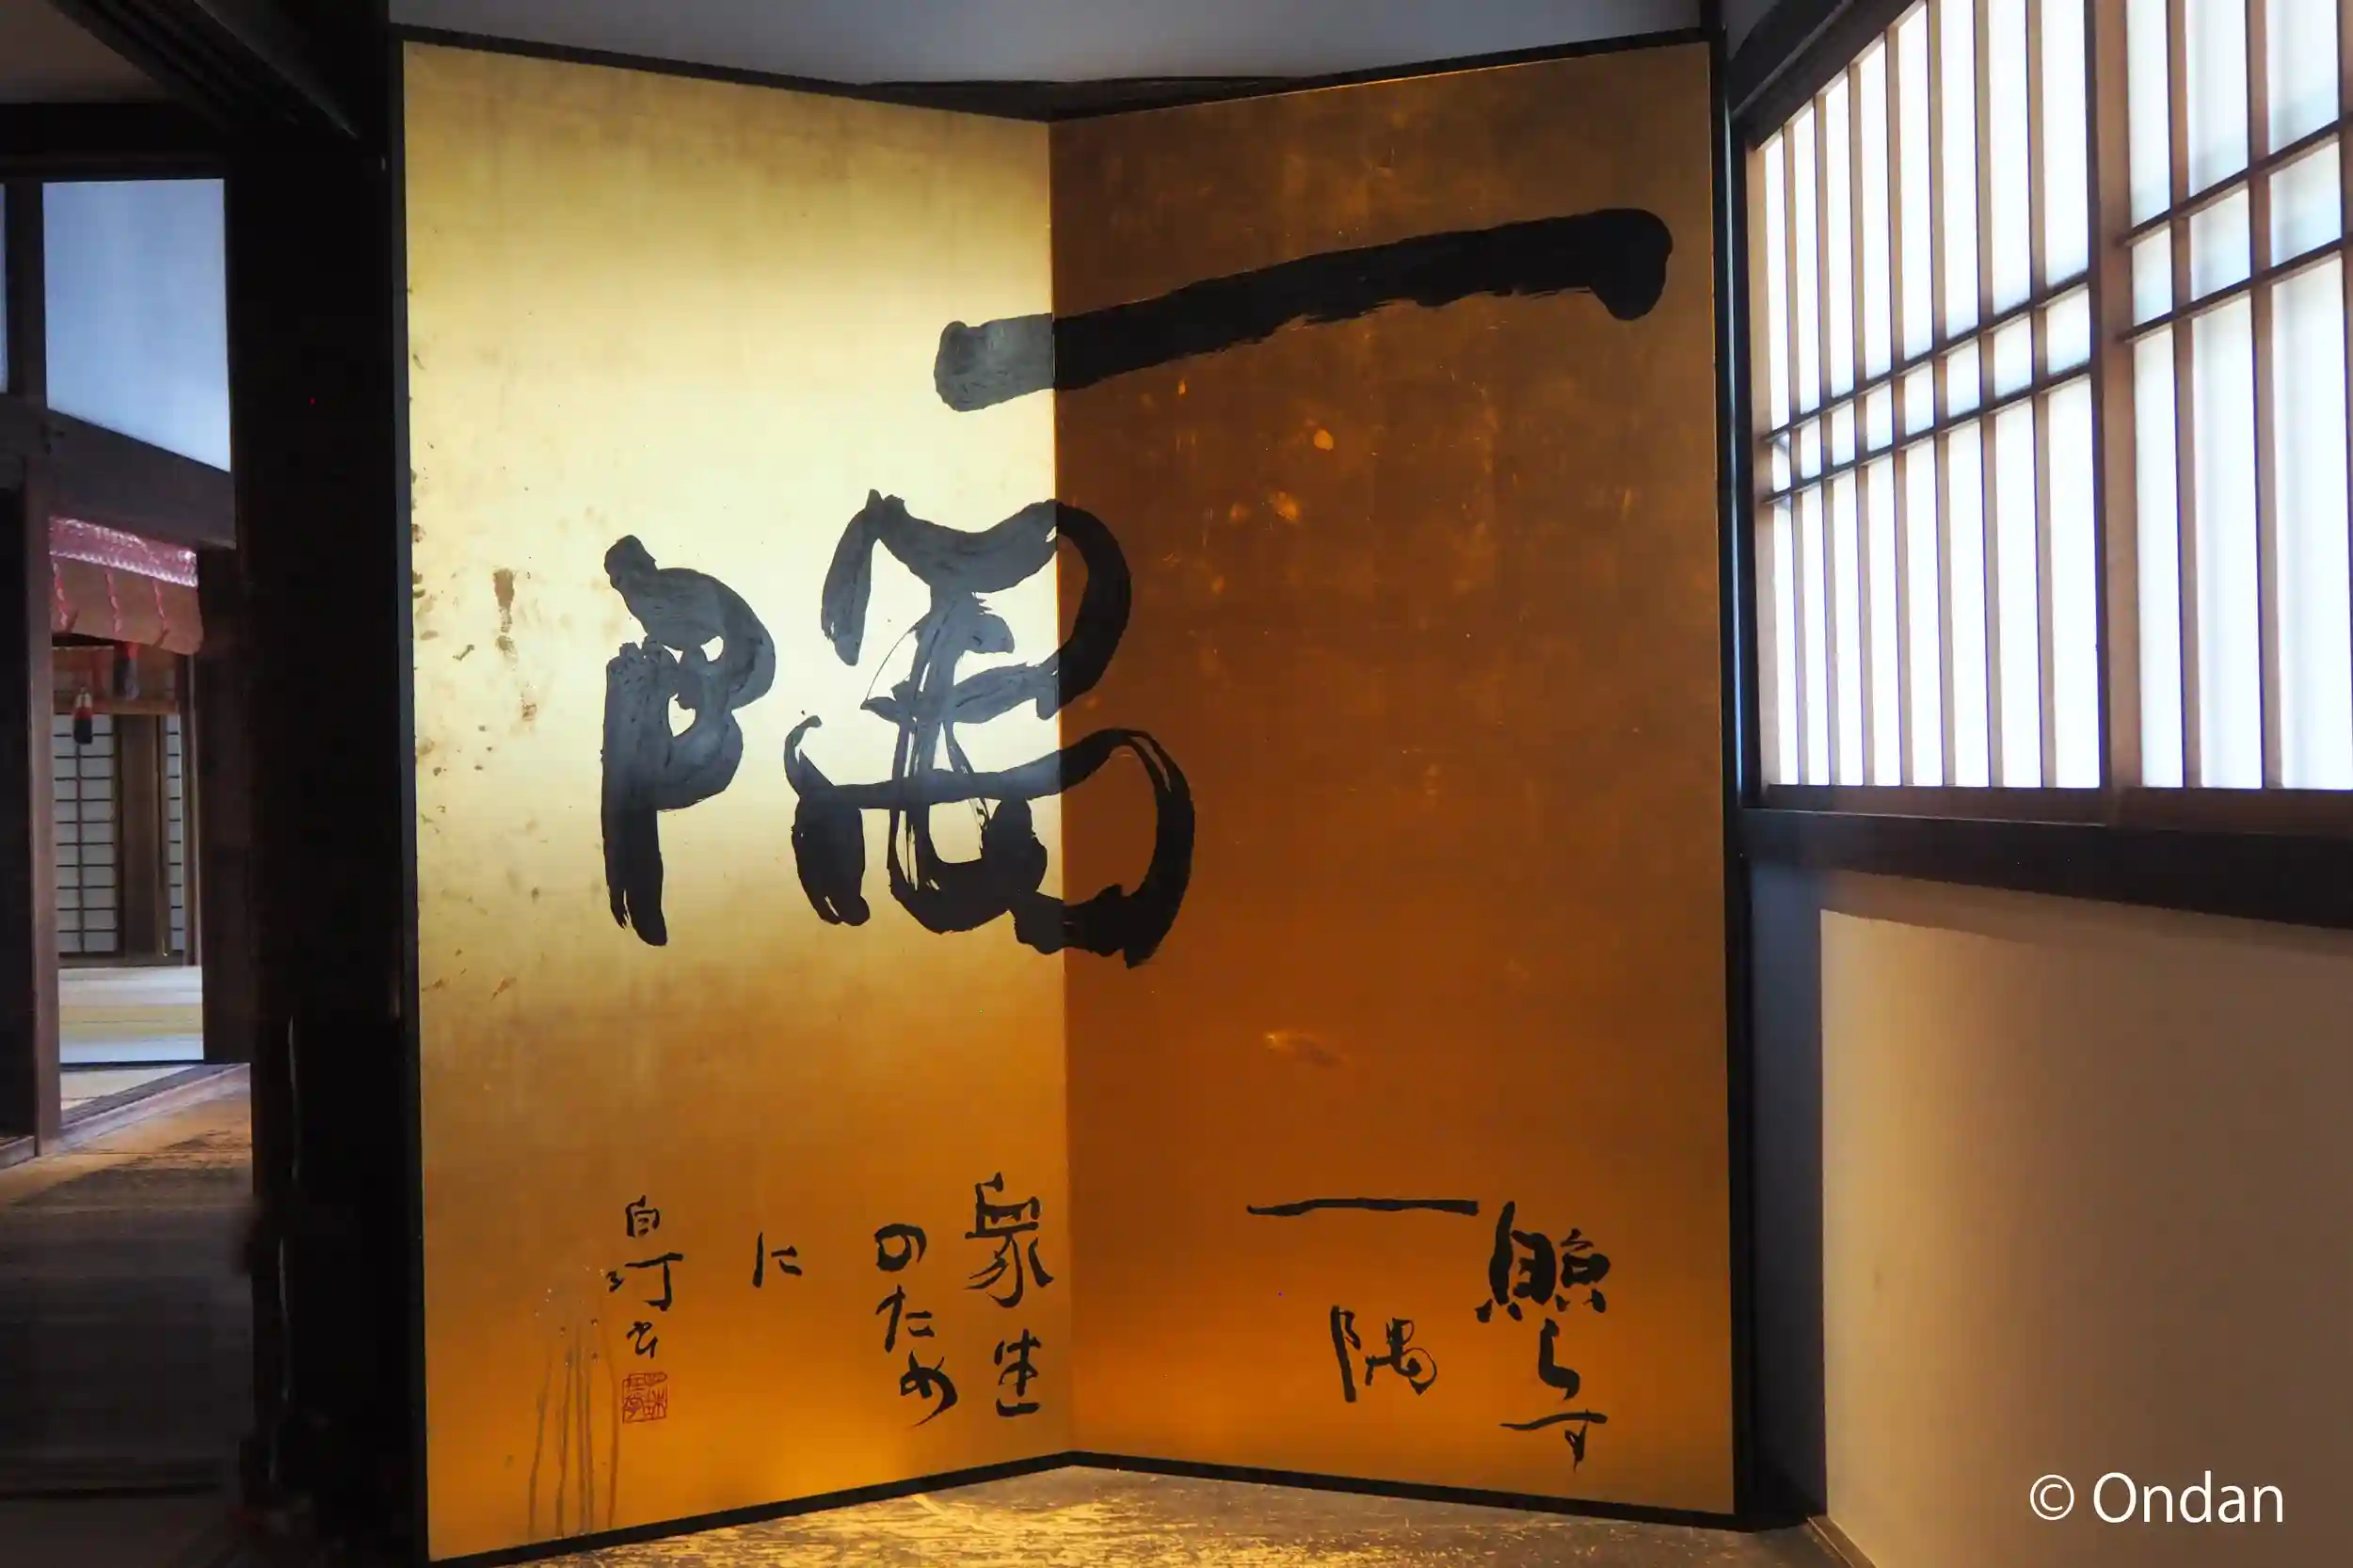 一隅
照らす
一隅
衆生
のため
に